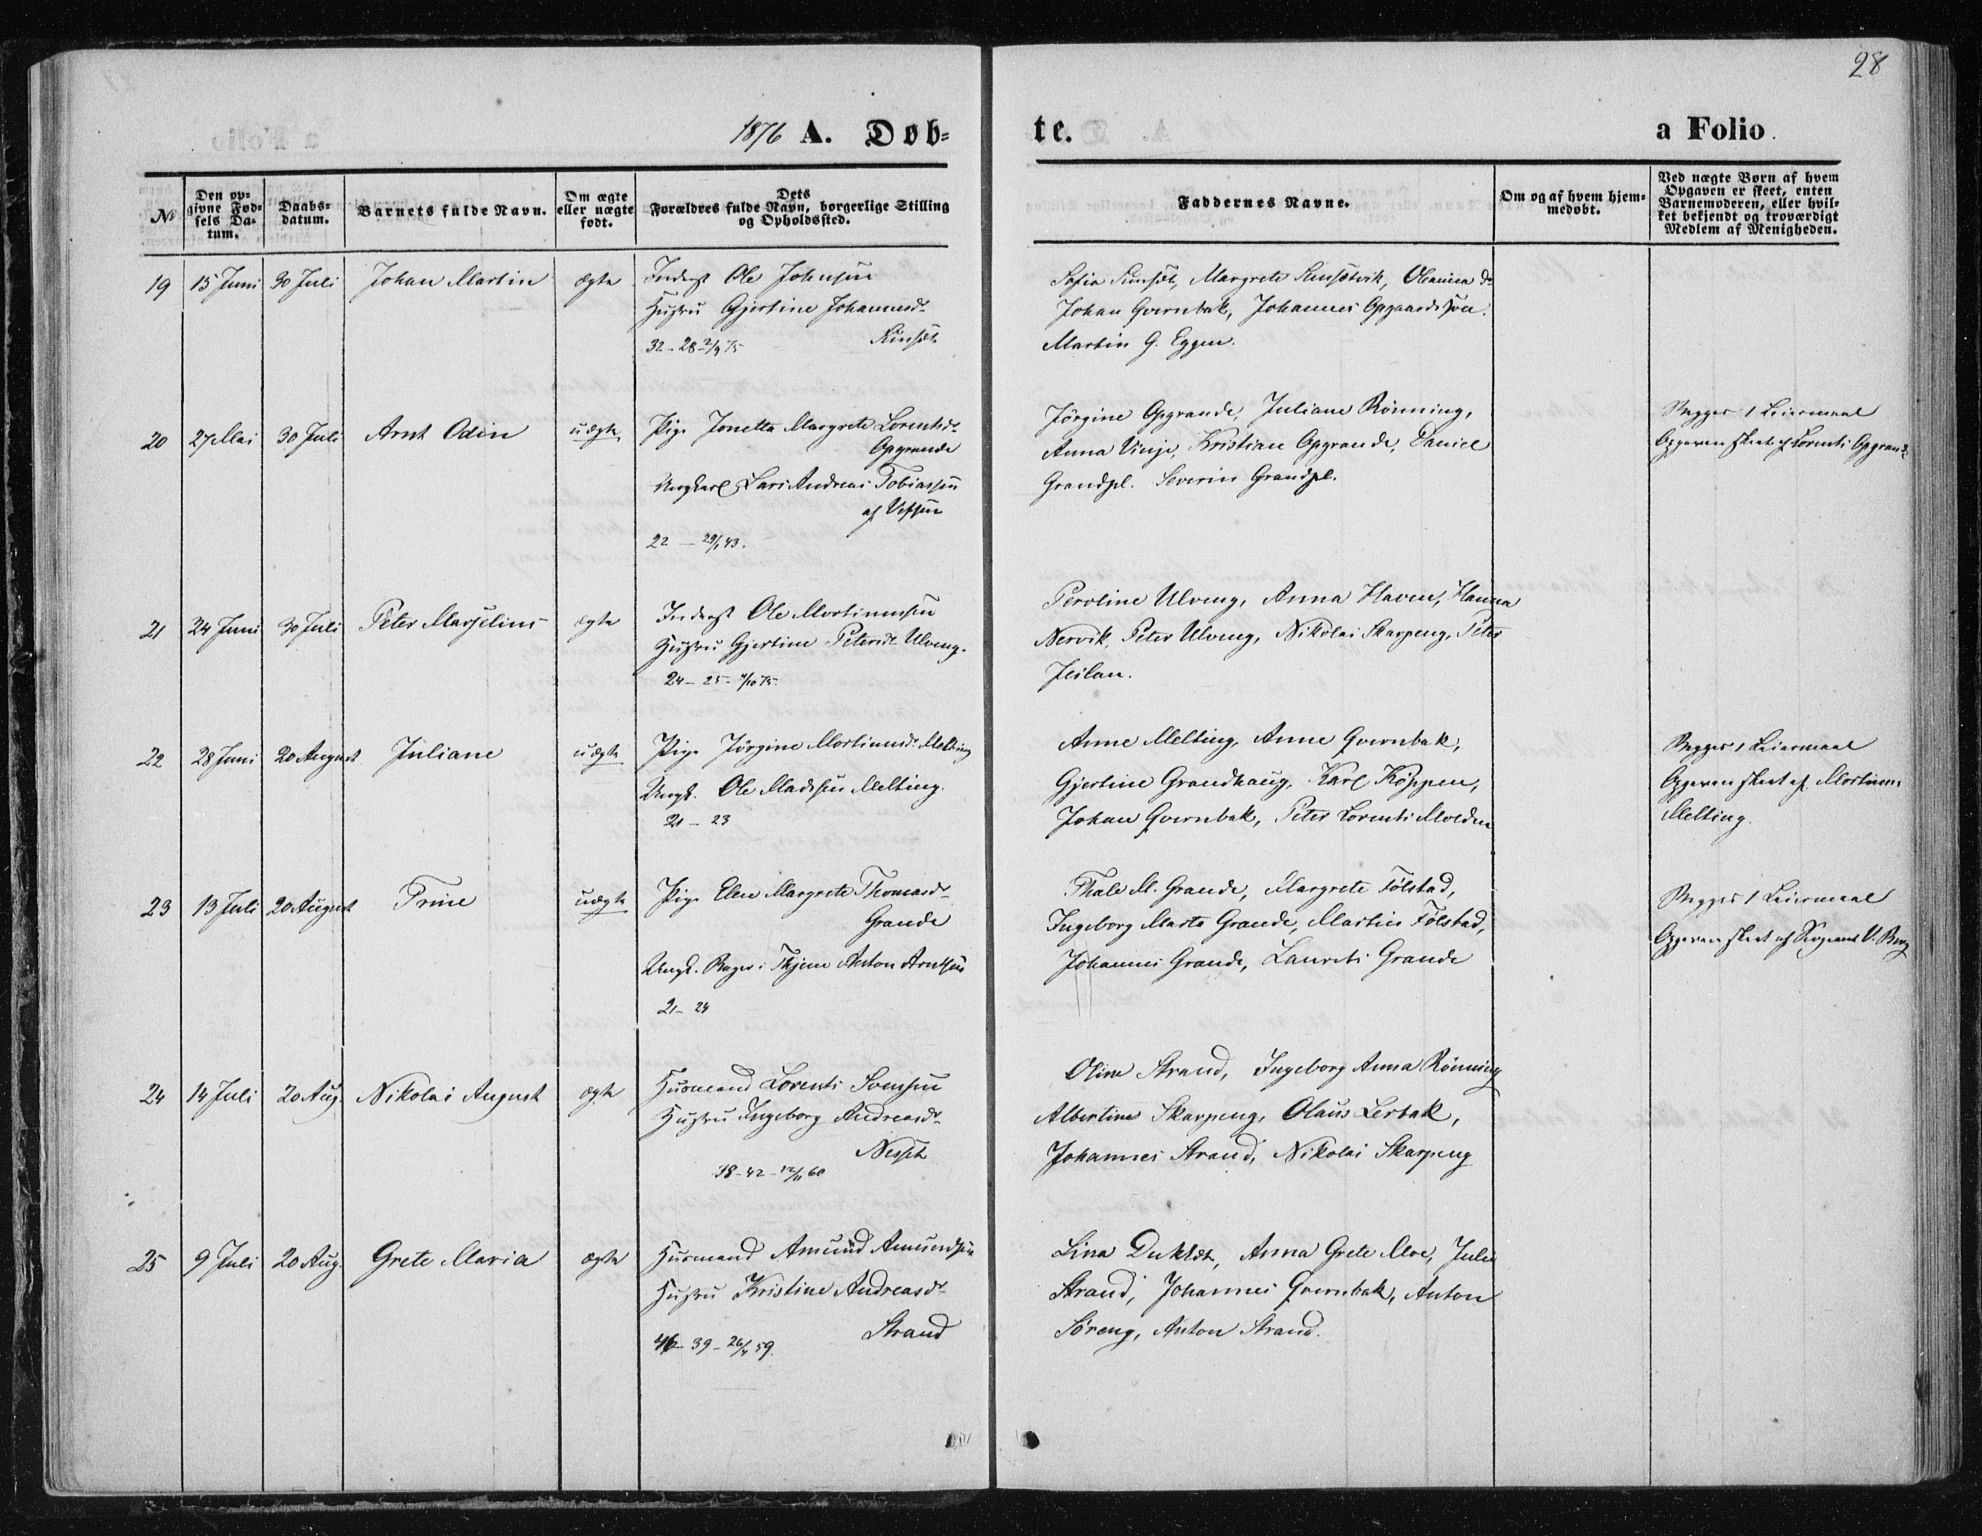 28
1876 A. Døb-
te.
a Folio.
No
Den op-
givne Fød-
sels Da-
tum.
Daabs-
datum.
Barnets fulde Navn.
Om ægte
eller uægte
født.
Dets
Forældres fulde Navn, borgerlige Stilling
og Opholdssted.
Faddernes Navne.
Om og af hvem hjem-
medøbt.
Ved uægte Børn af hvem
Opgaven er skeet, enten
Barnemoderen, eller hvil-
ket bekjendt og troværdigt
Medlem af Menigheden.
19 15 Juni 30 Juli Johan Martin ægte
Inderst Ole Johnsen
Hustru Gjertine Johannesdr
32 - 28
Johan Qvernbak, Johannes
Martin G. Eggen.
20 27 Mai 30 Juli Arnt Odin uægte
Pige Jonetta Margrete Lorentsdr
Opgrande
Ungkarl Lars Andreas Tobiassen
22 - 29/1 43.
Jörgine Opgrande, Juliane Rönning,
Anna Vinje, Kristian Opgrande, Daniel
Grandpl. Severin Grandpl.
Begges 1 Leiermaal
Opgaven skeet af Lorents Opgrande
21 24 Juni 30 Juli Peter Marselius ægte
Inderst Ole Mortinussen
Hustru Gjertine Petersdr Ulveng.
24 - 25 -
Peroline Ulveng, Anna Haven, Hanna
Nervik, Peter Ulveng, Nikolai Skarpeng, Peter
22 28 Juni 20 August Juliane uægte
Pige Jörgine Mortinusdr Melting
Ungk. Ole Madssen Melting.
21 - 23
Anne Melting, Anne Qvernbak,
Gjertine Grandhaug, Karl Köppen,
Johan Qvernbak, Peter Lorents Molden
Begges 1 Leiermaal
Opgaven skeet af Mortinus
Melting.
23 13 Juli 20 August Trine uægte
Pige Elen Margrete Thomasdr
Grande
Ungk. Anton Arntsen
21 - 24
Thale M. Grande, Margrete Fölstad,
Ingeborg Marta Grande, Martin Fölstad,
Johannes Grande, Laurits Grande
Begges 1 Leiermaal
Opgaven skeet af Sergeant V. Berg
24 14 Juli 20 Aug. Nikolai August ægte
Husmand Lorents Svensen
Hustru Ingeborg Andreasdr
Nesset
38 - 42 - 12/11 60
Oline Strand, Ingeborg Anna Rönning
Albertine Skarpeng, Olaus Lerbak,
Johannes Strand, Nikolai Skarpeng
25 9 Juli 20 Aug. Grete Maria ægte
Husmand Amund Amundsen
Hustru Kristine Andreasdr
Strand
46 - 39 - 26/4 59.
Lina Duklet, Anna Grete Moe, Julie
Strand, Johannes Qvernbak, Anton
Söreng, Anton Strand.